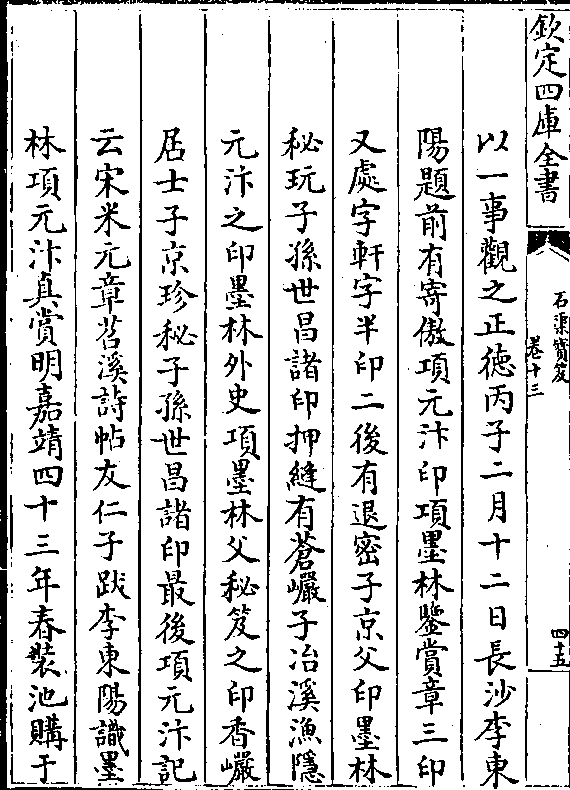 欽定四庫全書
石渠寳笈
卷十三
四十五
以一事觀之正徳丙子二月十二日長沙李東
陽題前有寄傲項元汴印項墨林鑒賞章三印
又處字軒字半印二後有退密子京父印墨林
秘玩子孫世昌諸印押縫有蒼巗子冶溪漁隱
元汴之印墨林外史項墨林父秘笈之印香巗
居士子京珍秘子孫世昌諸印最後項元汴記
云宋米元章苕溪詩帖友仁子跋李東陽識墨
林項元汴真賞明嘉靖四十三年春裝池購于